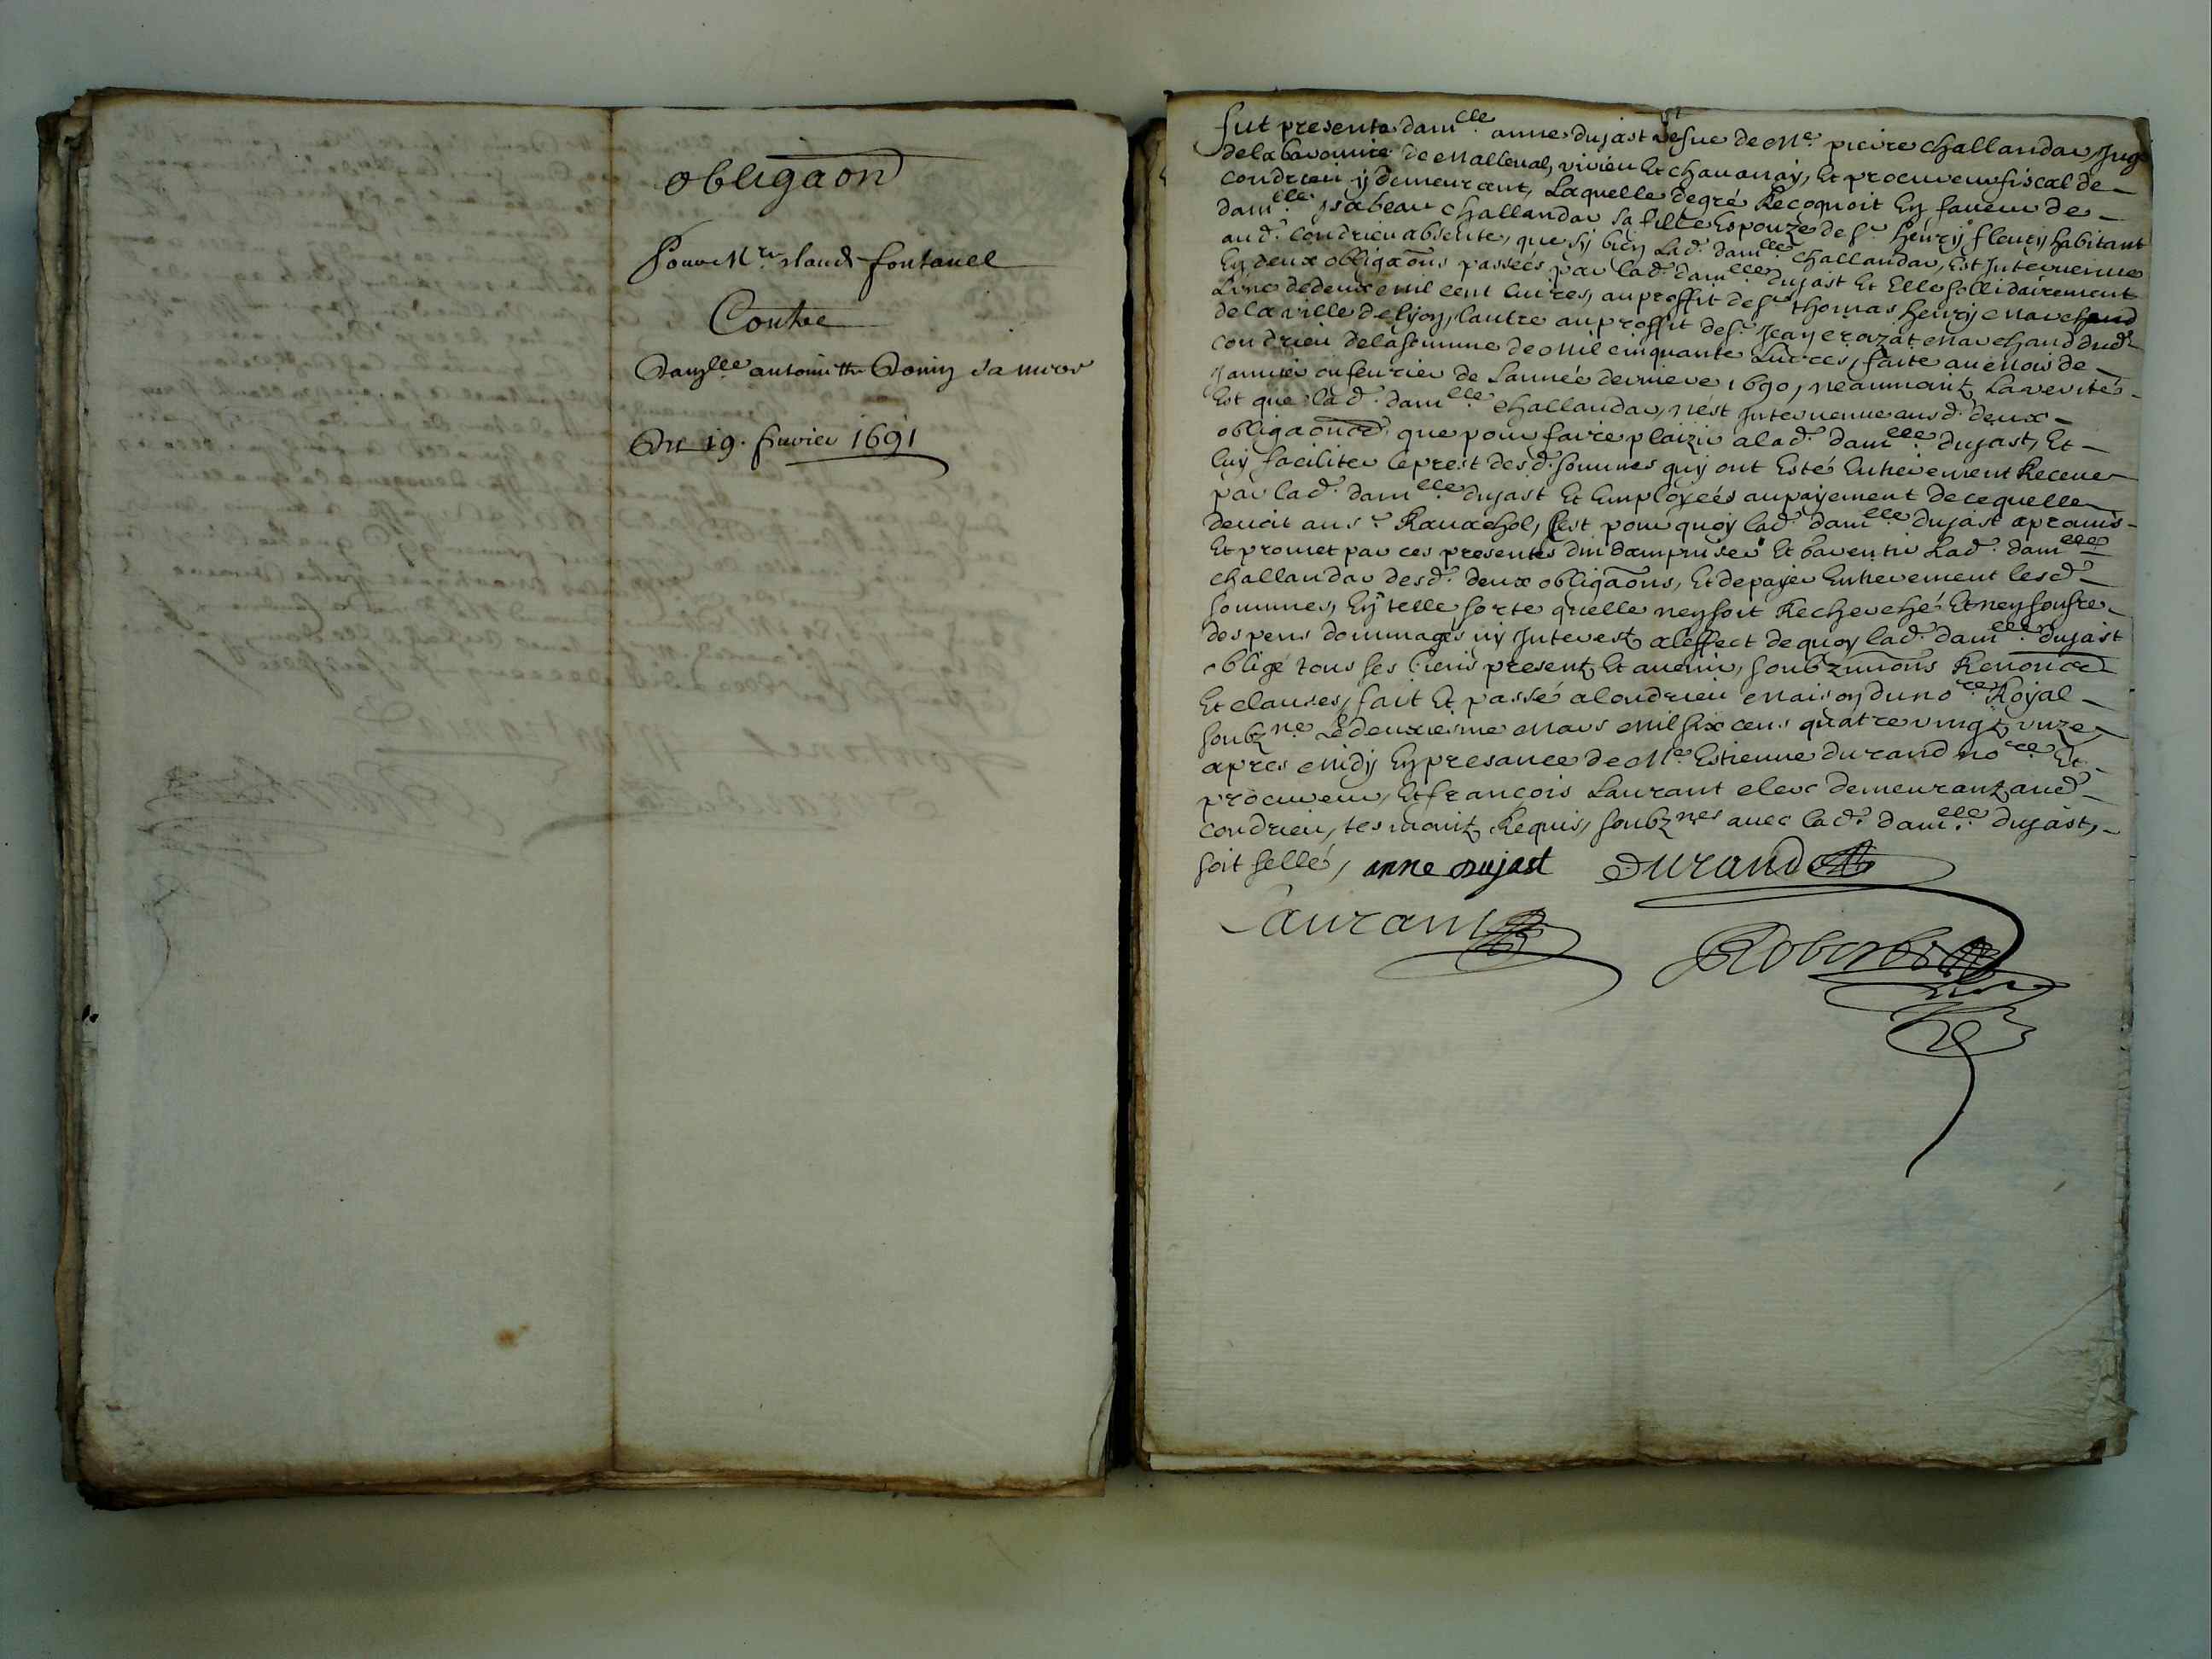 obligaon
Pour Mre claude fontanel
Contre
Damlle antoinette Domin sa mere
Du 19. feuvier 1691
fut presente damlle. anne dujast vefue de Me. pierre challandar Juge
de la baronnie de Malleual, virieu Et chauanay, Et procureur fiscal de
condrieu y demeurant, Laquelle degré Recognoit En faueur de
damlle ysabeau challandar sa fille Espouze de sr. henry fleury habitant
aud. Condrieu absente, que sy bien Lad. damlle challandar, Est Interuenue
En deux obligaons passeés par lad. damlle. dujast Et Elle sollidairement
Lune de deux mil cent liures, au proffit de sr thomas henry Marchand
de la ville de lyon, lautre au proffit de sr. Jean crozat Marchand dud.
condrieu de la somme de Mil cinquante Liures, faite au Mois de
Januier ou feurier de Lannée derniere 1690, neaumointz La verité
Est que lad. damlle challandar, n'est Interuenue ausd. deux
obligaons que pour faire plaizir a lad. damlle. dujast, Et
luy faciliter le prest desd. sommes quy ont Esté Entierement Receue
par lad. damlle. dujast Et Employeés au payement de ce quelle
deuoit au sr. Rauachol, Cest pourquoy lad. damlle dujast a promis
Et promet par ces presentes dindampniser Et Garentir Lad. damlle
challandar desd. deux obligaons, Et de payer Entierement lesd.
sommes, En telle sorte quelle ney soit Recherché Et ney soufre
despens dommages ny Interestz a leffect de quoy lad. damlle. dujast
oblige tous ses biens presentz Et auenir, soubzmions Renonce
Et clauses, fait Et passé a Condrieu Maison du nore Royal
soubzne. Le deuxiesme Mars Mil six cens quatre vingtz vnze
apres Midy En presance de Me Estienne durand nore Et
procureur, Et françois Laurant clerc demeurantz aud.
condrieu, tesmointz Requis, soubznes auec lad. damlle. dujast,
soit sellé, anne dujast Durand
Laurant